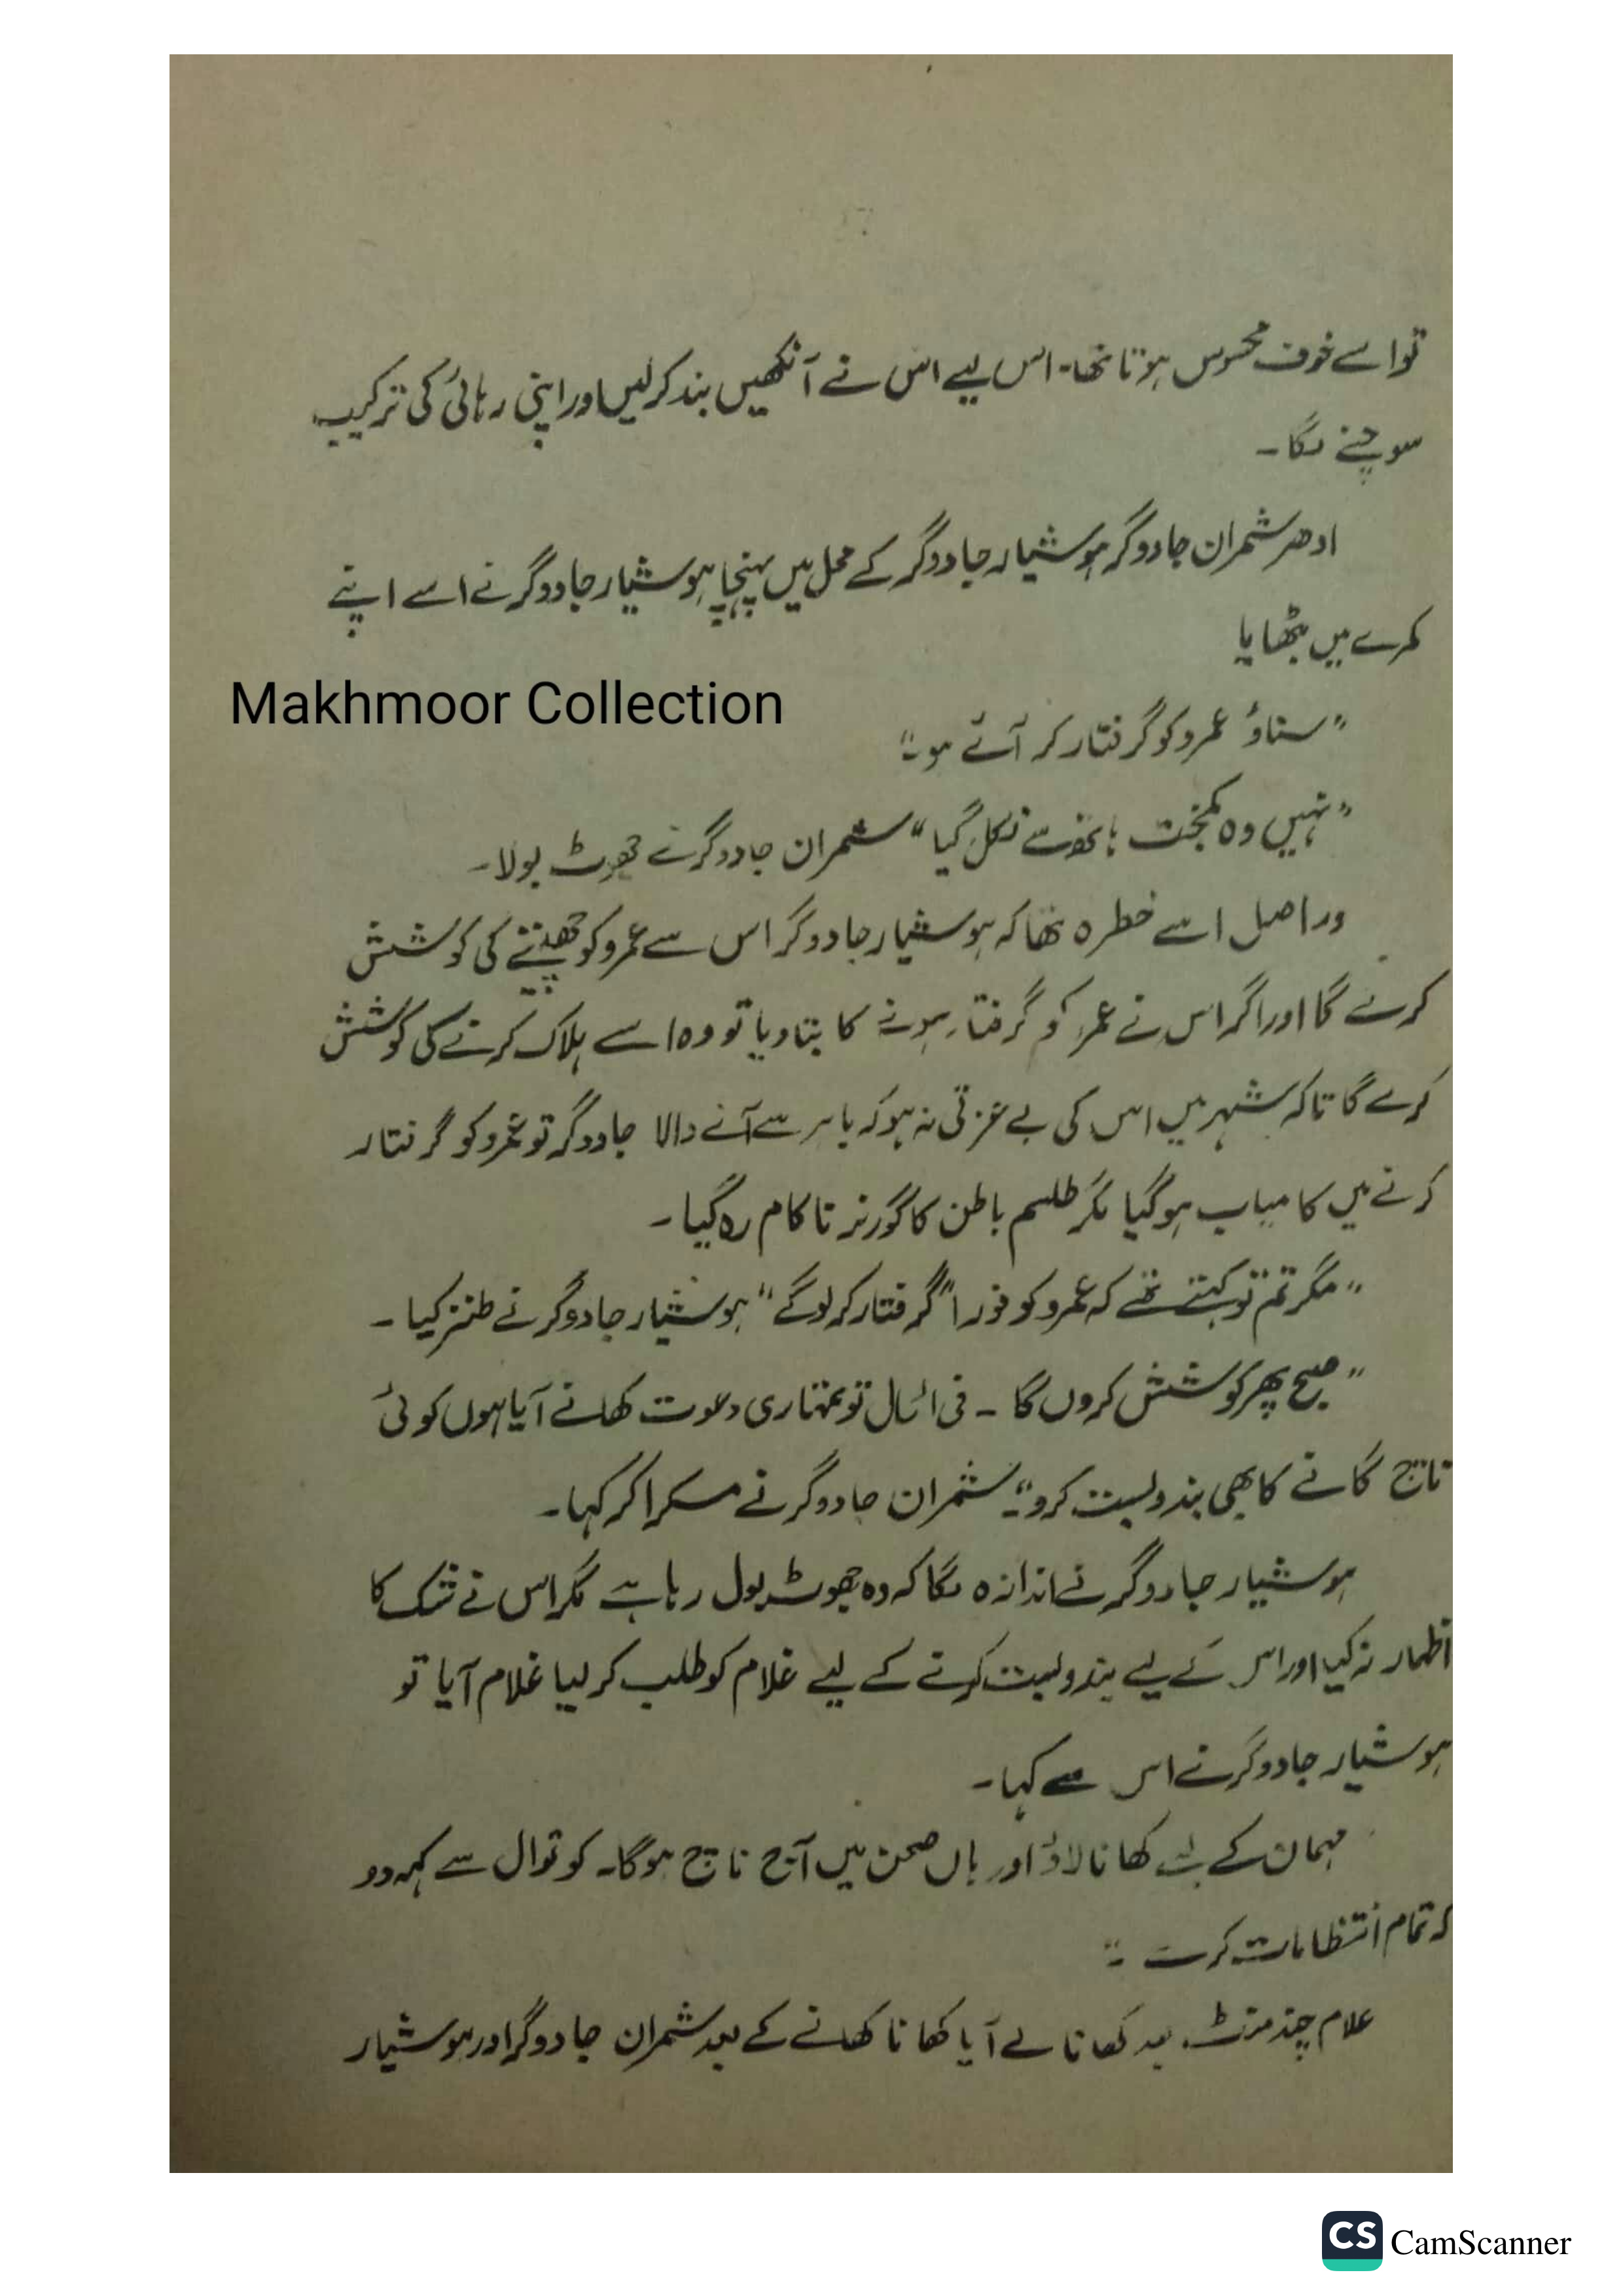 تو اسے خوف محسوس ہوتا تھا۔ اس لیے اس نے آنکھیں بند کر لیں اور اپنی رہائی کی ترکیب
سوچنے لگا۔
ادھر شمران جادوگر ہوشیار جادوگر کے محل میں پہنچا ہوشیار جادوگر نے اسے اپنے
کمرے میں بٹھایا
Makhmoor Collection
"سناؤ عمرو کو گرفتار کر آئے ہو"
"نہیں وہ کمبخت ہاتھ سے نکل گیا" شمران جادوگر نے جھوٹ بولا۔
دراصل اسے خطرہ تھا کہ ہوشیار جادوگر اس سے عمرو کو چھیننے کی کوشش
کرنے گا اور اگر اس نے عمرو کو گرفتار ہونے کا بتا دیا تو وہ اسے ہلاک کرنے کی کوشش
کرے گا تاکہ شہر میں اس کی بے عزتی نہ ہو کہ باہر سے آنے والا جادوگر تو عمرو کو گرفتار
کرنے میں کامیاب ہو گیا مگر طلسم باطن کا گورنر ناکام رہ گیا۔
"مگر تم تو کہتے تھے کہ عمرو کو فوراً گرفتار کر لو گے" ہوشیار جادوگر نے طنز کیا۔
"صبح پھر کوشش کروں گا۔ فی الحال تو تمہاری دعوت کھانے آیا ہوں کوئی
ناچ گانے کا بھی بندوبست کرو" شمران جادوگر نے مسکرا کر کہا۔
ہوشیار جادوگر نے اندازہ لگا کہ وہ جھوٹ بول رہا ہے مگر اس نے شک کا
اظہار نہ کیا اور اس کے لیے بندوبست کرنے کے لیے غلام کو طلب کر لیا غلام آیا تو
ہوشیار جادوگر نے اس سے کہا۔
مہمان کے لئے کھانا لاؤ اور ہاں صحن میں آج ناچ ہوگا۔ کوتوال سے کہہ دو
کہ تمام انتظامات کرے"
غلام چند منٹ بعد کھانا لے آیا کھانا کھانے کے بعد شمران جادوگر اور ہوشیار
CS CamScanner